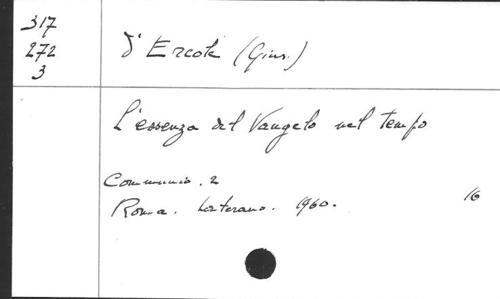 317
272
3
d'Ercole (Gius.)
L'essenza del Vangelo nel tempo
Communio. 2
Roma. Laterano. 1960.
16